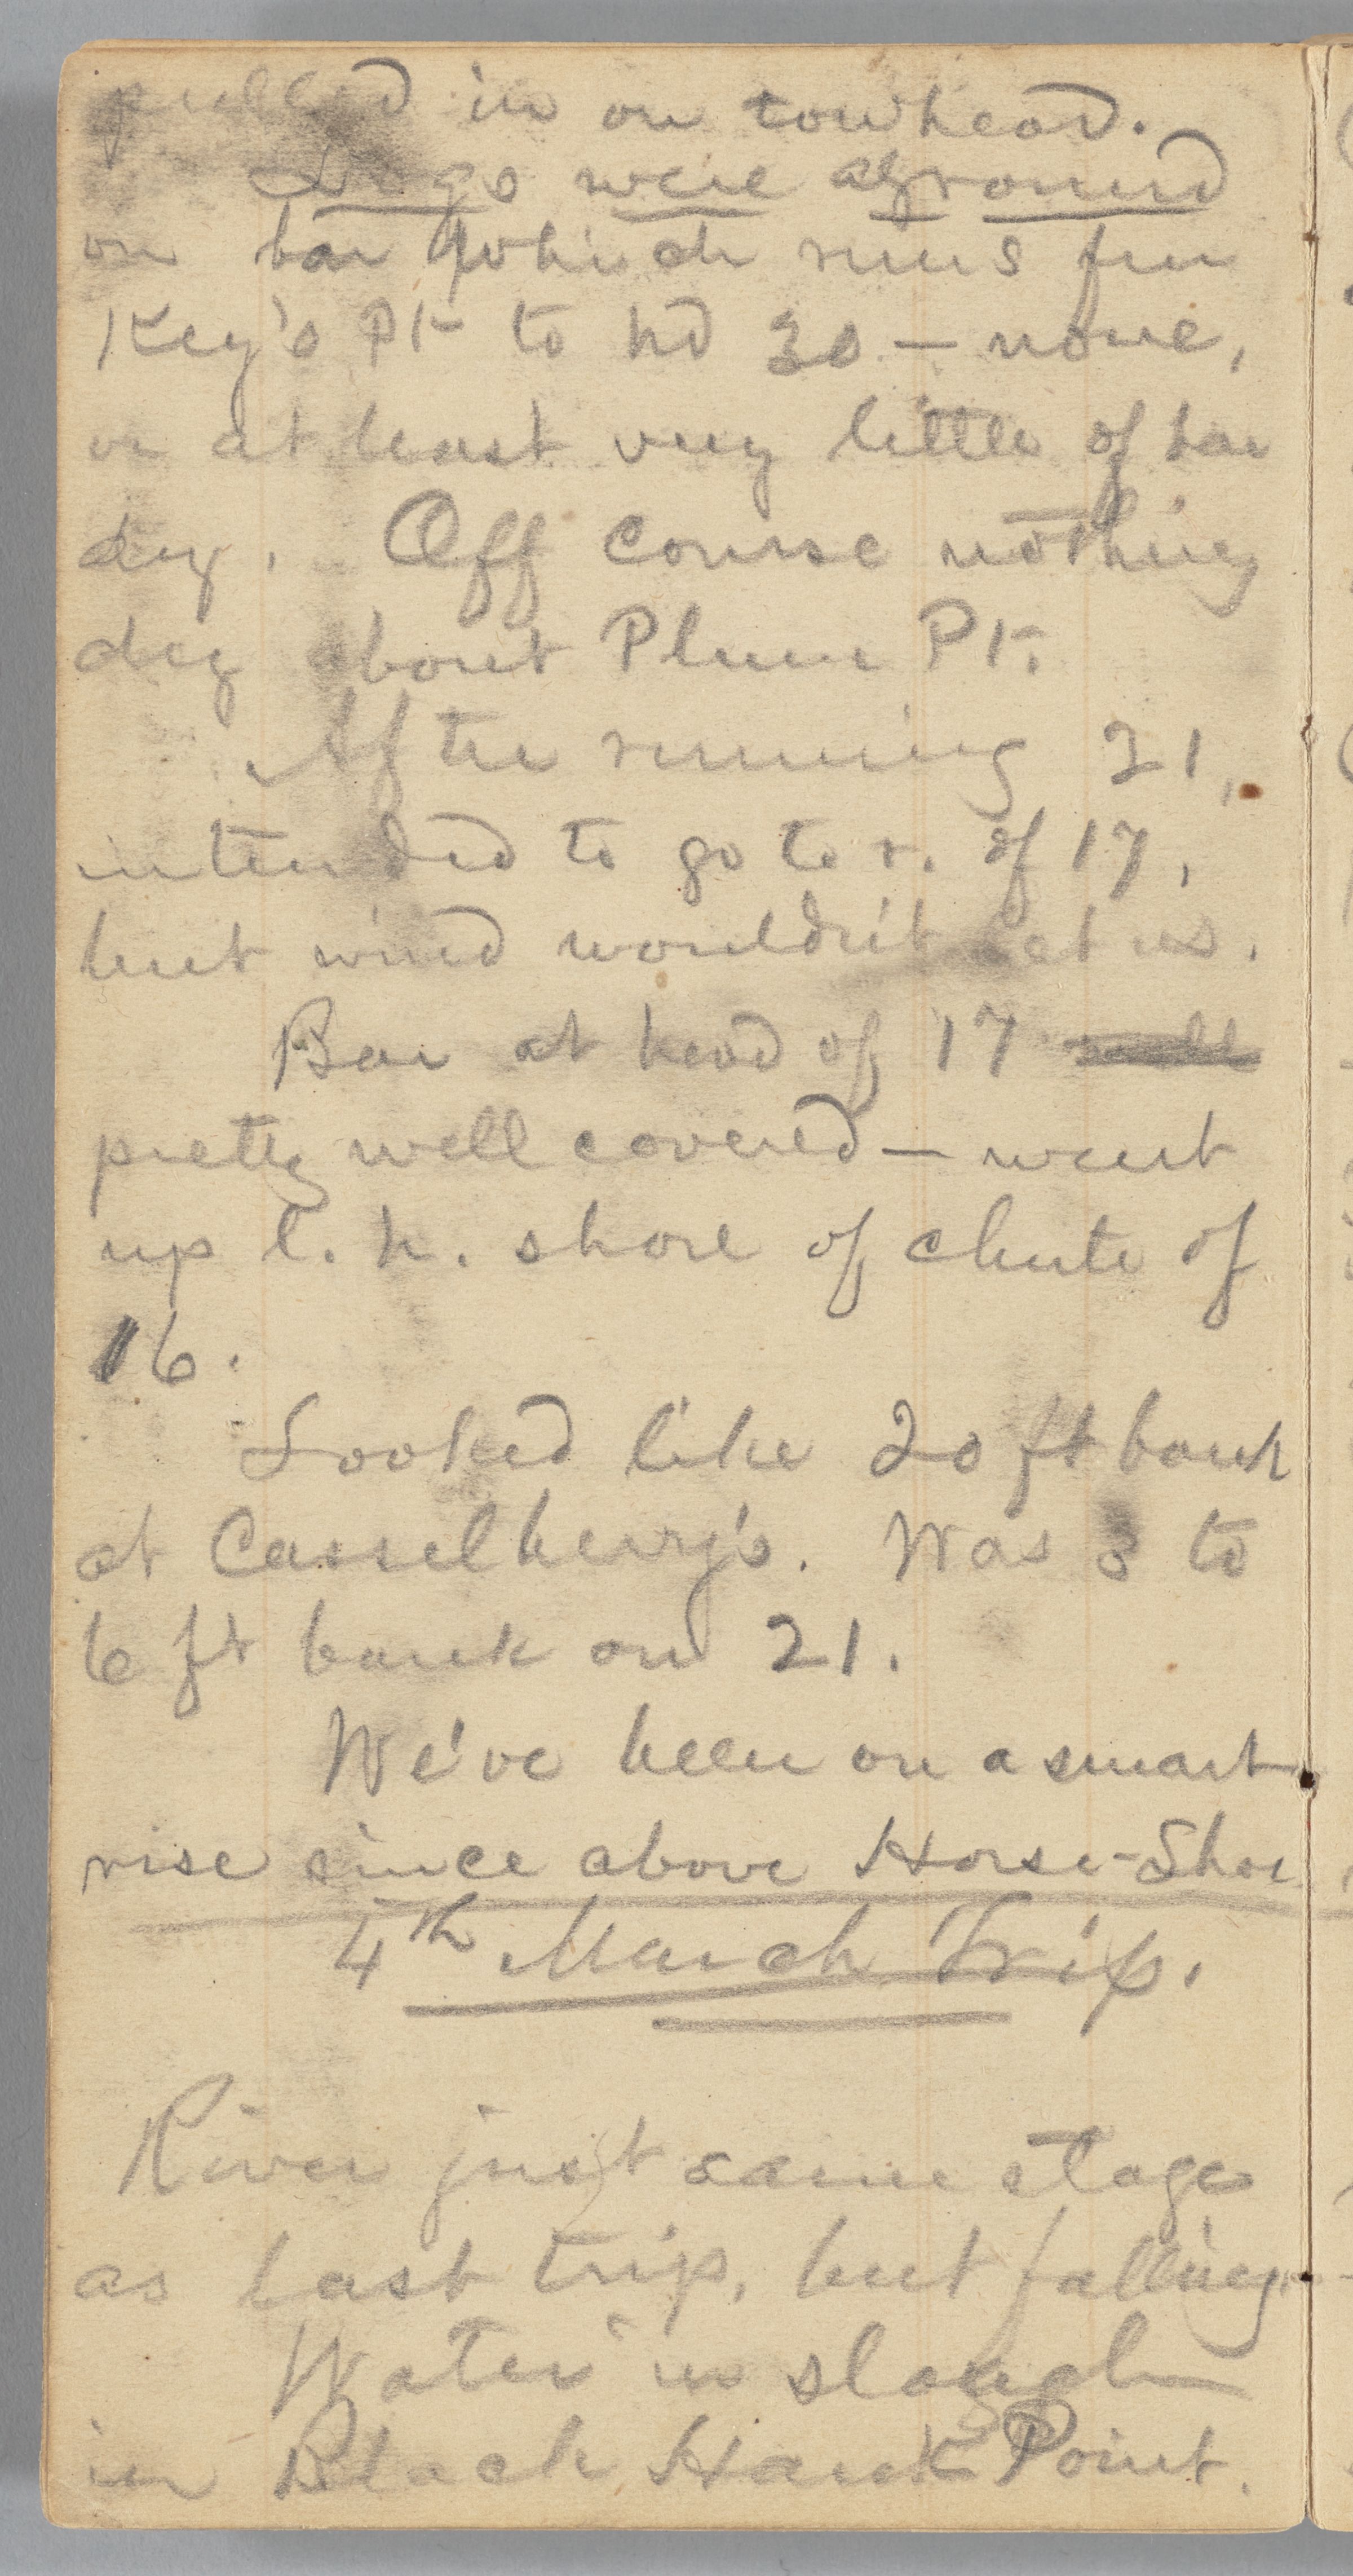 pulled in on towhead.
Logs were aground
on bar which runs fm
Key's Pt to hd 30 — none,
or at least very little of bar
dry. Off course nothing
dry about Plum Pt.
After running 21,
intended to go to r. of 17,
but wind wouldn't let us.
Bar at head of 17
pretty well covered — went
up l. h. shore of chute of
16.
Looked like 20 ft bank
at Casselberry's. Was 3 to
6 ft bank on 21.
We've been on a smart
rise since above Horse-Shoe
4th March Trip.
River just same stage
as last trip, but falling.
Water in slough
in Black Hawk Point.